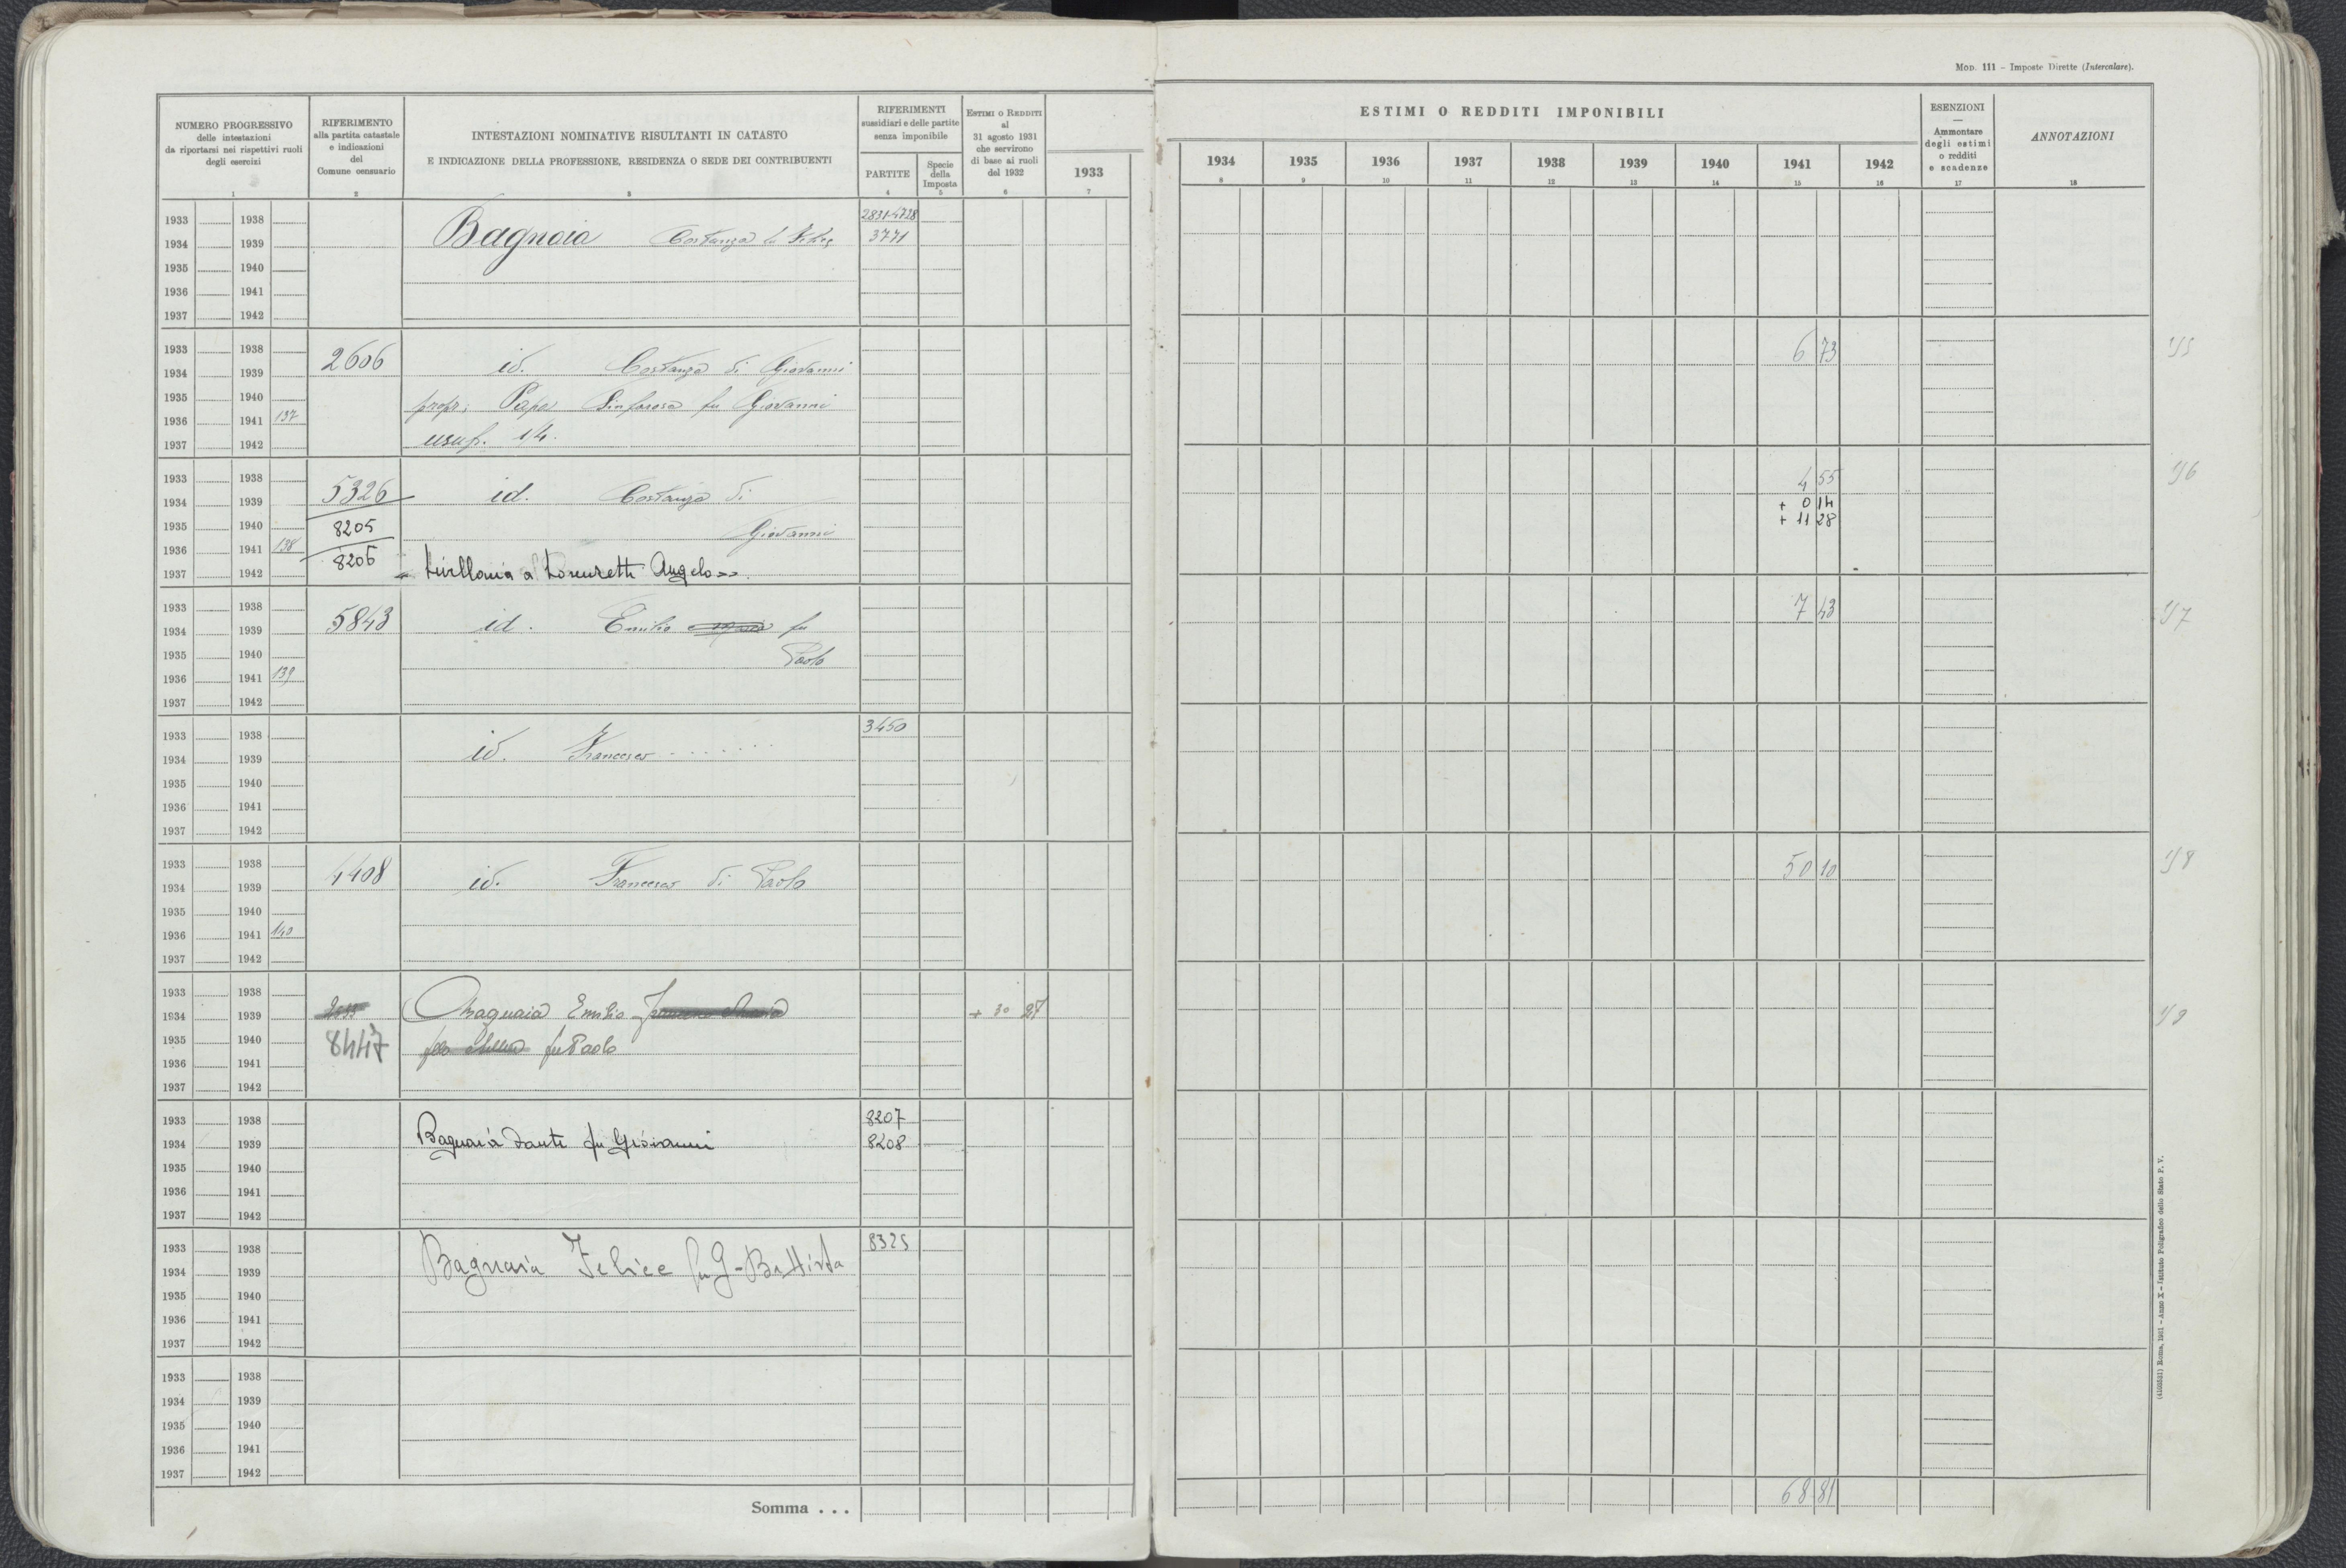 MOD. 111 – Imposte Dirette (Intercalare).
NUMERO PROGRESSIVO
delle intestazioni
da riportarsi nei rispettivi ruoli
degli esercizi
1
RIFERIMENTO
alla partita catastale
e indicazioni
del
Comune censuario
2
INTESTAZIONI NOMINATIVE RISULTANTI IN CATASTO
E INDICAZIONE DELLA PROFESSIONE, RESIDENZA O SEDE DEI CONTRIBUENTI
3
RIFERIMENTI
sussidiari e delle partite
senza imponibile
PARTITE
4
Specie
della
Imposta
5
ESTIMI O REDDITI
al
31 agosto 1931
che servirono
di base ai ruoli
del 1932
6
1933
7
ESTIMI O REDDITI IMPONIBILI
1934 1935 1936 1937 1938 1939 1940 1941 1942
8 9 10 11 12 13 14 15 16
ESENZIONI
—
Ammontare
degli estimi
o redditi
e scadenze
17
ANNOTAZIONI
18
1933 1938 2831-4728
1934 1939 Bagnaia Costanza 3771
1935 1940
1936 1941
1937 1942
1933 1938 6 73
1934 1939 2606 id. Costanza di Giovanni
1935 1940 propr; Papa Sinforosa fu Giovanni
1936 1941 137
1937 1942 usuf. 1/4.
1933 1938 4 55
1934 1939 5326 id. Costanza di + 0 14
1935 1940 8205 Giovanni + 11 28
1936 1941 138
1937 1942 8206 « Livellaria a Lorenzetti Angelo»
1933 1938 7 43
1934 1939 5843 id. Emilio fu
1935 1940 Paolo
1936 1941 139
1937 1942
1933 1938 3450
1934 1939 id. Francesco . . . . . . .
1935 1940
1936 1941
1937 1942
1933 1938 50 10
1934 1939 4408 id. Francesco di Paolo
1935 1940
1936 1941 140
1937 1942
1933 1938
1934 1939 Bagnaia Emilio + 30 27
1935 1940 8447 fu Paolo
1936 1941
1937 1942
1933 1938 8207
1934 1939 Bagnaia Dante fu Giovanni 8208
1935 1940
1936 1941
1937 1942
1933 1938 8325
1934 1939 Bagnaia Felice fu G-Battista
1935 1940
1936 1941
1937 1942
1933 1938
1934 1939
1935 1940
1936 1941
1937 1942
Somma . . . 68 81
(4103531) Roma, 1931 – Anno X – Istituto Poligrafico dello Stato P. V.